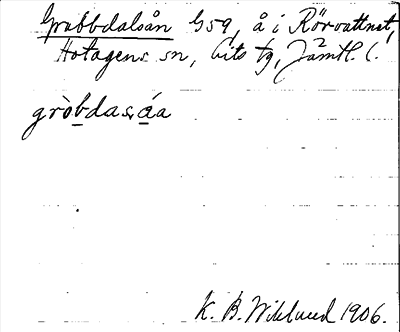 Grubbdalsån G59, å i Rörvattnet,
Hotagens sn, Lits tg, Jämtl. l.
2
gròbdasáa
K. B. Wiklund 1906.